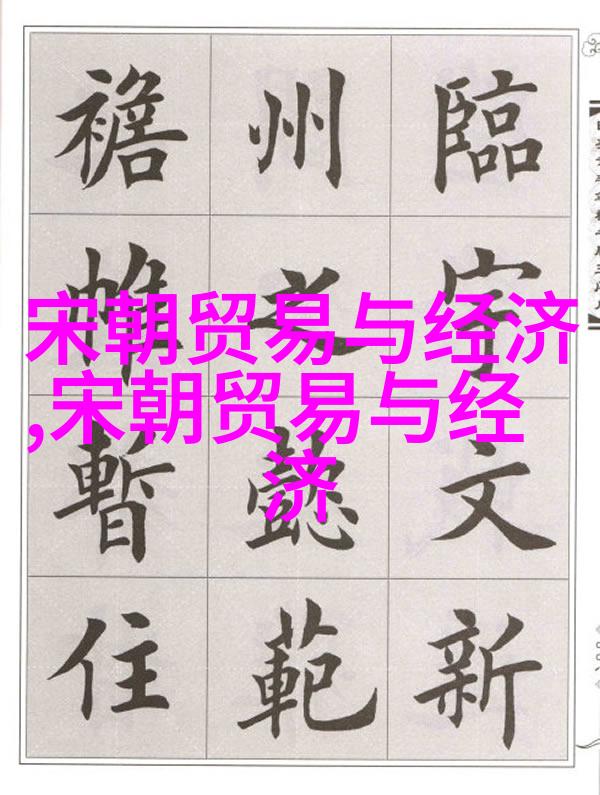 宋朝贸易与经济
,宋朝贸易与经
济
臨宇文新
州之懿範
襜帷暫住